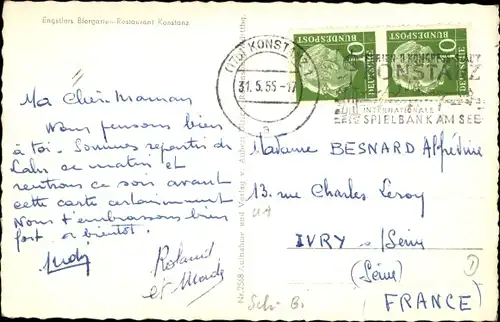 Engstlers Biergarten-Restaurant Konstanz
Ma Chère Maman
Nous pensons bien
à toi. Sommes repartis de
Lahr ce matin et
rentrons ce soir avant
cette carte certainement
Nous t'embrassons bien
fort à bientôt.
Roland
et
(17b) KONSTANZ
31.5.55-17
a
DEUTSCHE BUNDESPOST
10
DEUTSCHE BUNDESPOST
10
KONSTANZ
INTERNATIONALE
SPIELBANK AM SEE
Madame BESNARD
13. rue Charles Leroy
IVRY s/Seine
(Seine)
FRANCE)